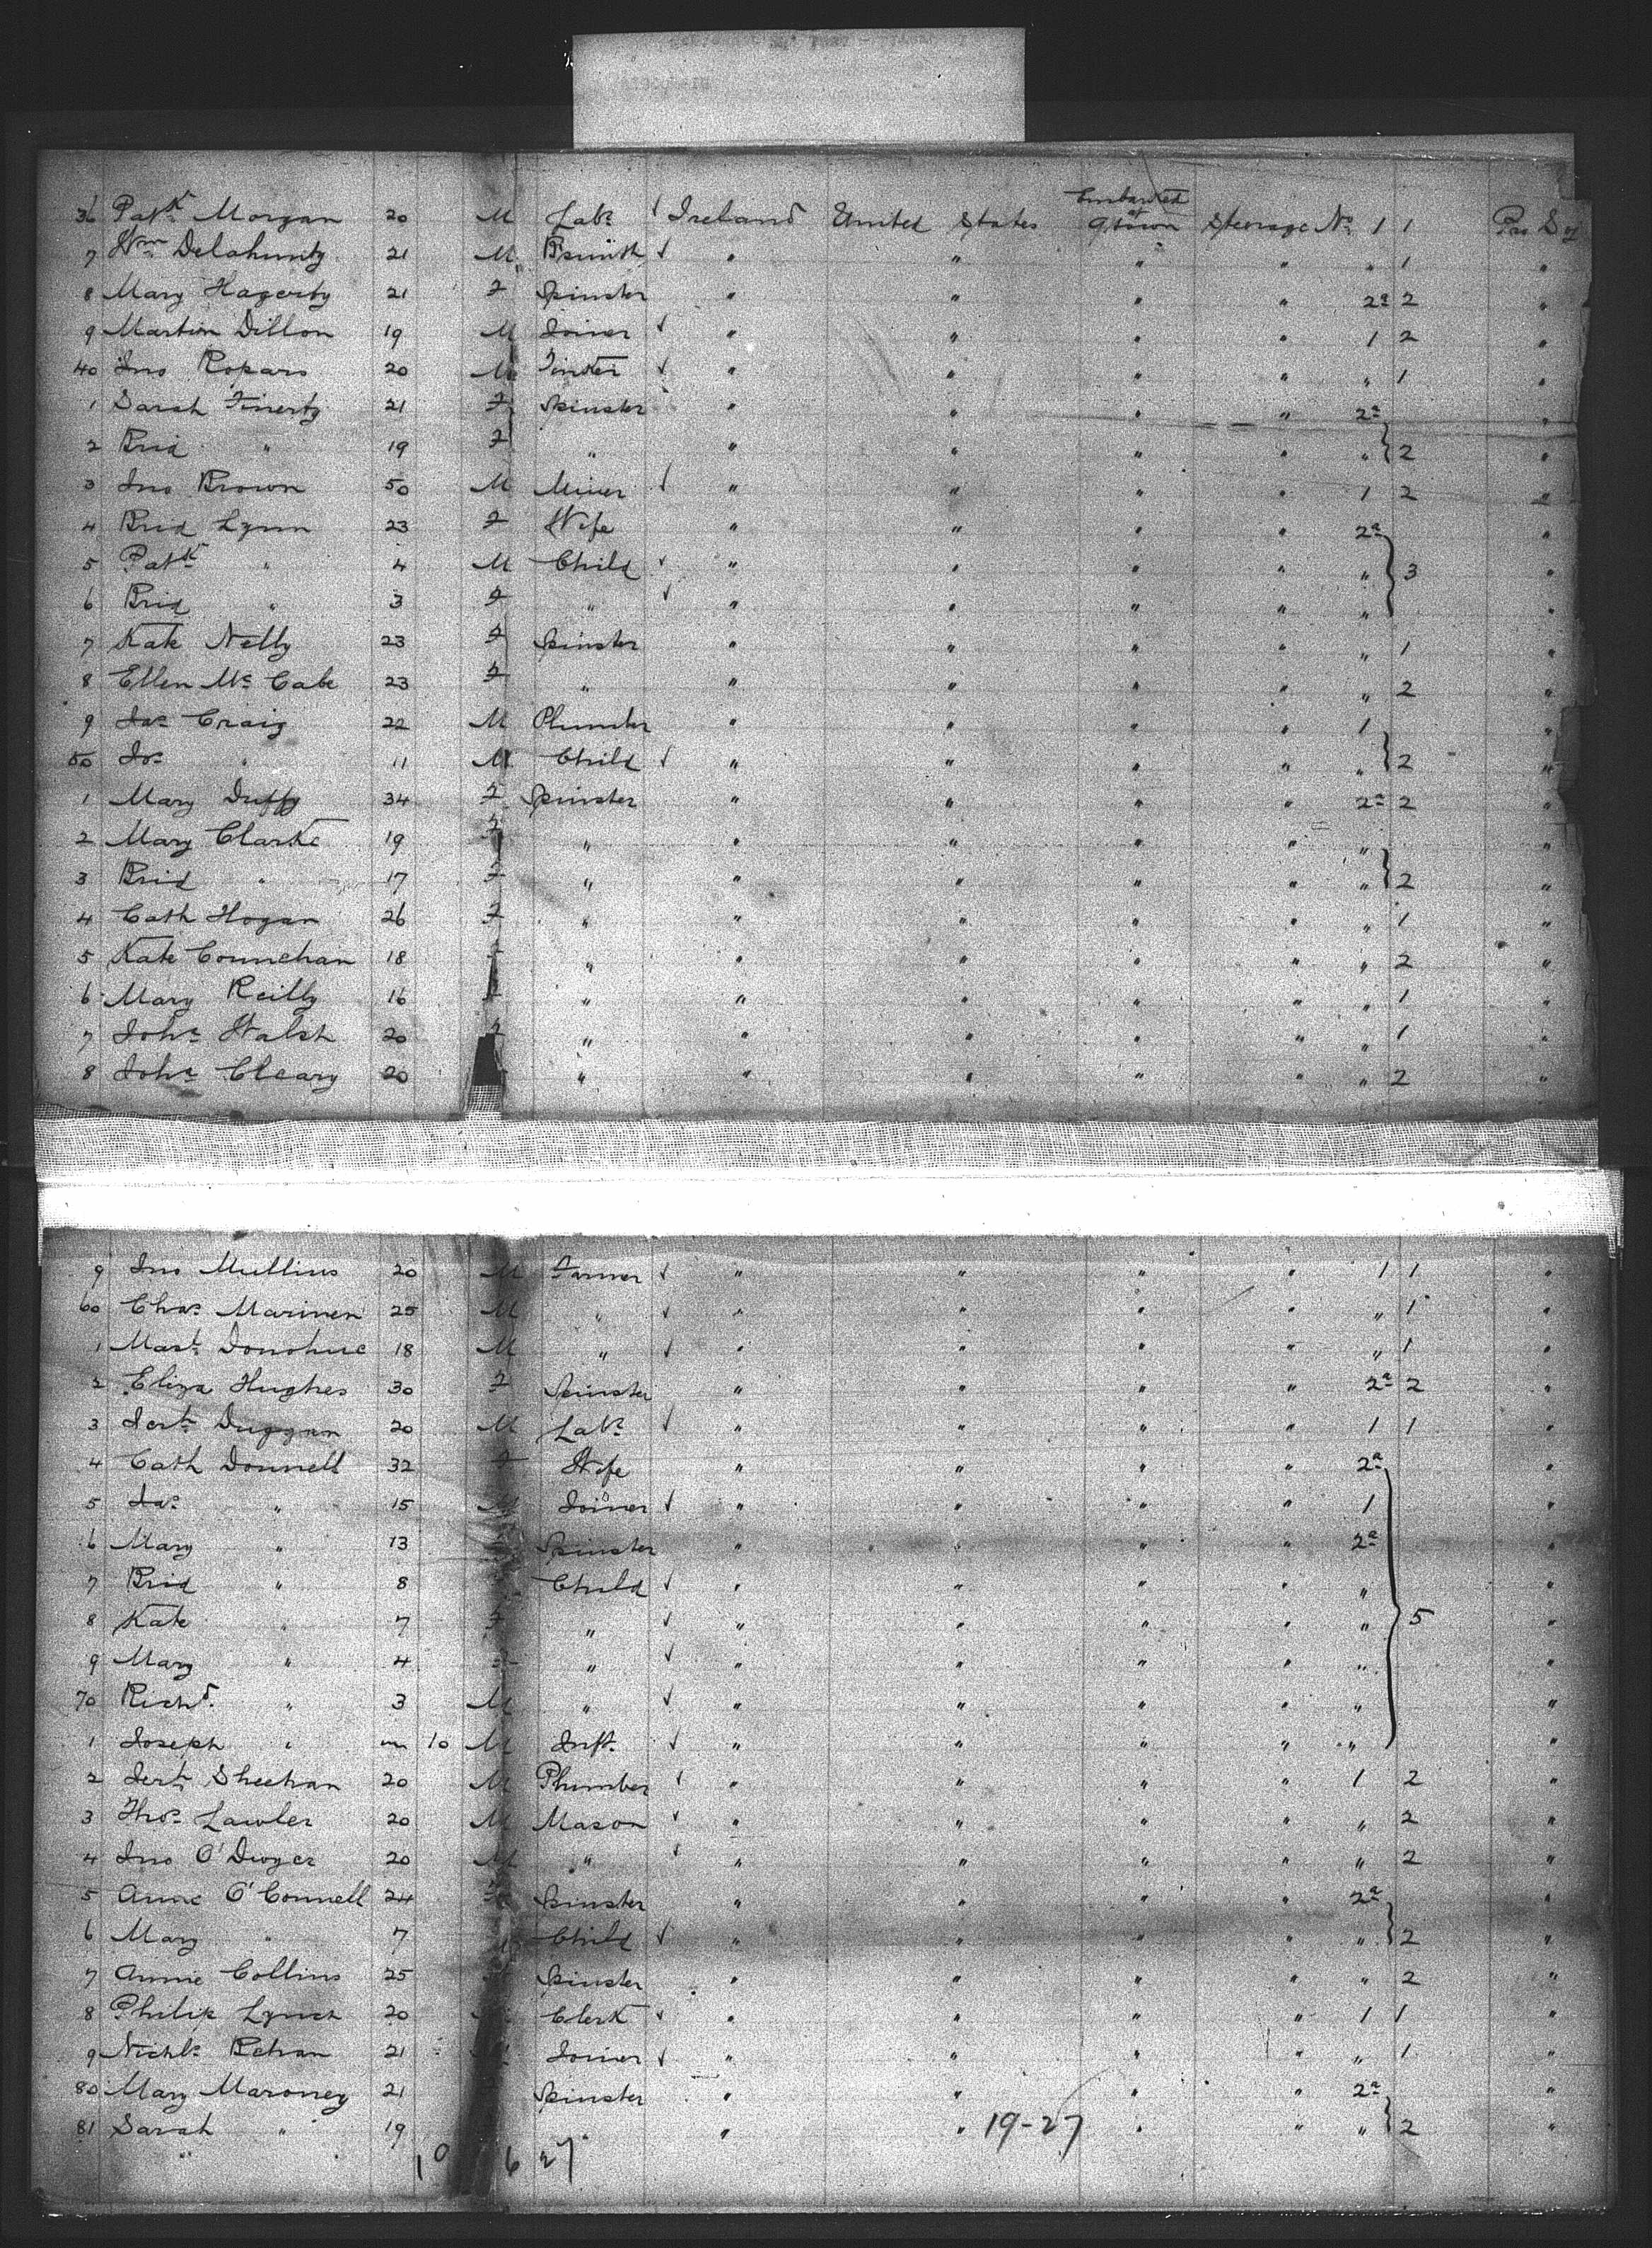 Embarked at
36 Patk Morgan 20 M Labr Ireland United States Qtown Steerage No 1 1
7 Wm Delahunty 21 M Bsmith " " " " " 1 "
8 Mary Hagerty 21 F Spinster " " " " 2a 2 "
9 Martin Dillon 19 M Joiner " " " " 1 2 "
40 Jno 20 M " " " " " 1 "
1 Sarah Finerty 21 F Spinster " " " " 2a "
2 Brid " 19 F " " " " " " 2 "
3 Jno Brown 50 M Miner " " " " 1 2 "
4 Brid Lynn 23 F Wife " " " " 2a "
5 Patk " 4 M Child " " " " " 3 "
6 Brid " 3 F " " " " " " "
7 Kate Nelly 23 F Spinster " " " " " 1 "
8 Ellen Mc Cabe 23 F " " " " " " 2 "
9 Jas Craig 22 M Plumber " " " " 1 "
50 Jos " 11 M Child " " " " " 2 "
1 Mary Duffy 34 F Spinster " " " " 2a 2 "
2 Mary Clarke 19 F " " " " " " "
3 Brid " 17 F " " " " " " 2 "
4 Cath Hogan 26 F " " " " " " 1 "
5 Kate Counehan 18 " " " " " " 2 "
6 Mary Reilly 16 " " " " " " 1 "
7 Joha Walsh 20 F " " " " " " 1 "
8 Joha Cleary 20 " " " " " " 2 "
9 Jno Mullins 20 M Farmer " " " " 1 1 "
60 Chas Marinen 25 M " " " " " " 1 "
1 Mart Donohue 18 M " " " " " " 1 "
2 Eliza Hughes 30 F Spinster " " " " 2a 2 "
3 Jert Duggan 20 M Labr " " " " 1 1 "
4 Cath Donnell 32 F Wife " " " " 2a "
5 Jas " 15 M Joiner " " " " 1 "
6 Mary " 13 Spinster " " " " 2a "
7 Brid " 8 Child " " " " " "
8 Kate " 7 F " " " " " " 5 "
9 Mary " 4 " " " " " " "
70 Richd " 3 M " " " " " " "
1 Joseph " m 10 M Inft. " " " " " "
2 Jert Sheehan 20 M Plumber " " " " 1 2 "
3 Thos Lawler 20 M Mason " " " " " 2 "
4 Jno O'Dwyer 20 M " " " " " " 2 "
5 Anne O'Connell 24 Spinster " " " " 2a "
6 Mary " 7 Child " " " " " 2 "
7 Annie Collins 25 Spinster " " " " " 2 "
8 Philip Lynch 20 Clerk " " " " 1 1 "
9 Nichls Behan 21 Joiner " " " " " 1 "
80 Mary Maroney 21 Spinster " " " " 2a "
81 Sarah " 19 " " " " " 2 "
19-27
10 6 27